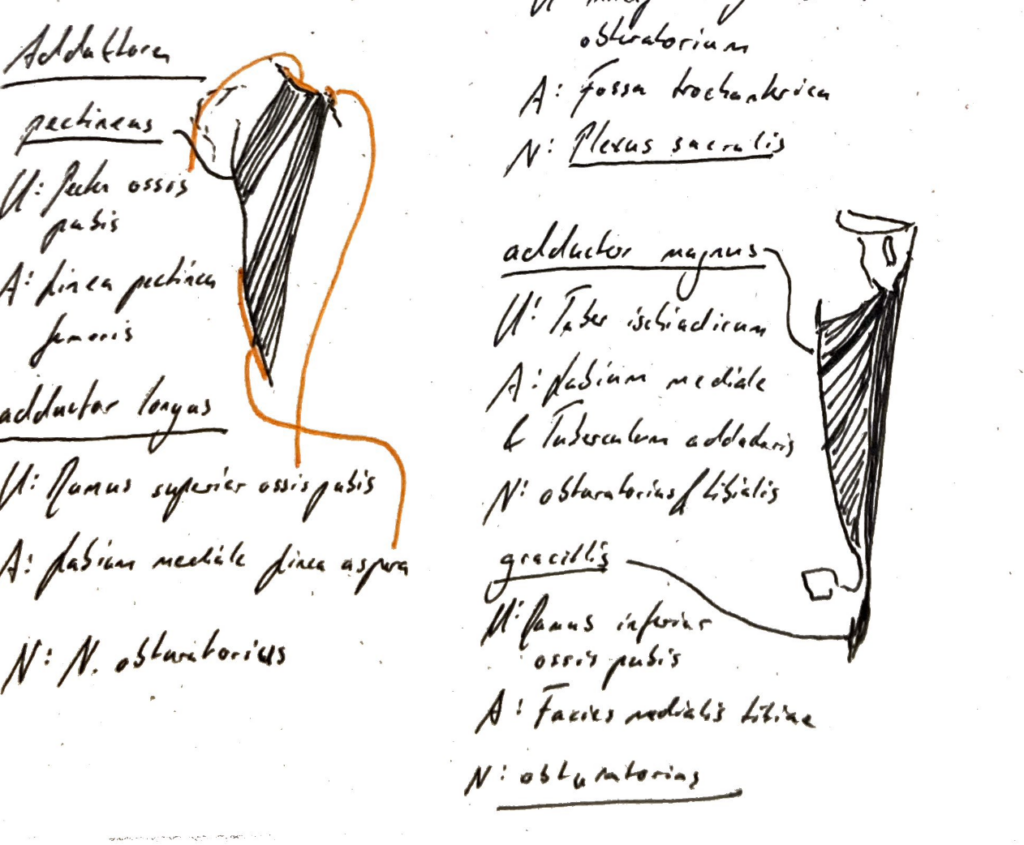 Adduktoren
pectineus
U: Pecten ossis
pubis
A: Linea pectinea
femoris
adductor longus
U: Ramus superior ossis pubis
A: Labium mediale Linea aspera
N: N. obturatorius
obturatorium
A: Fossa trochanterica
N: Plexus sacralis
adductor magnus
U: Tuber ischiadicum
A: Labium mediale
& Tuberculum
N: obturatorius / tibialis
gracillis
U: Ramus inferior
ossis pubis
A: Facies medialis tibiae
N: obturatorius